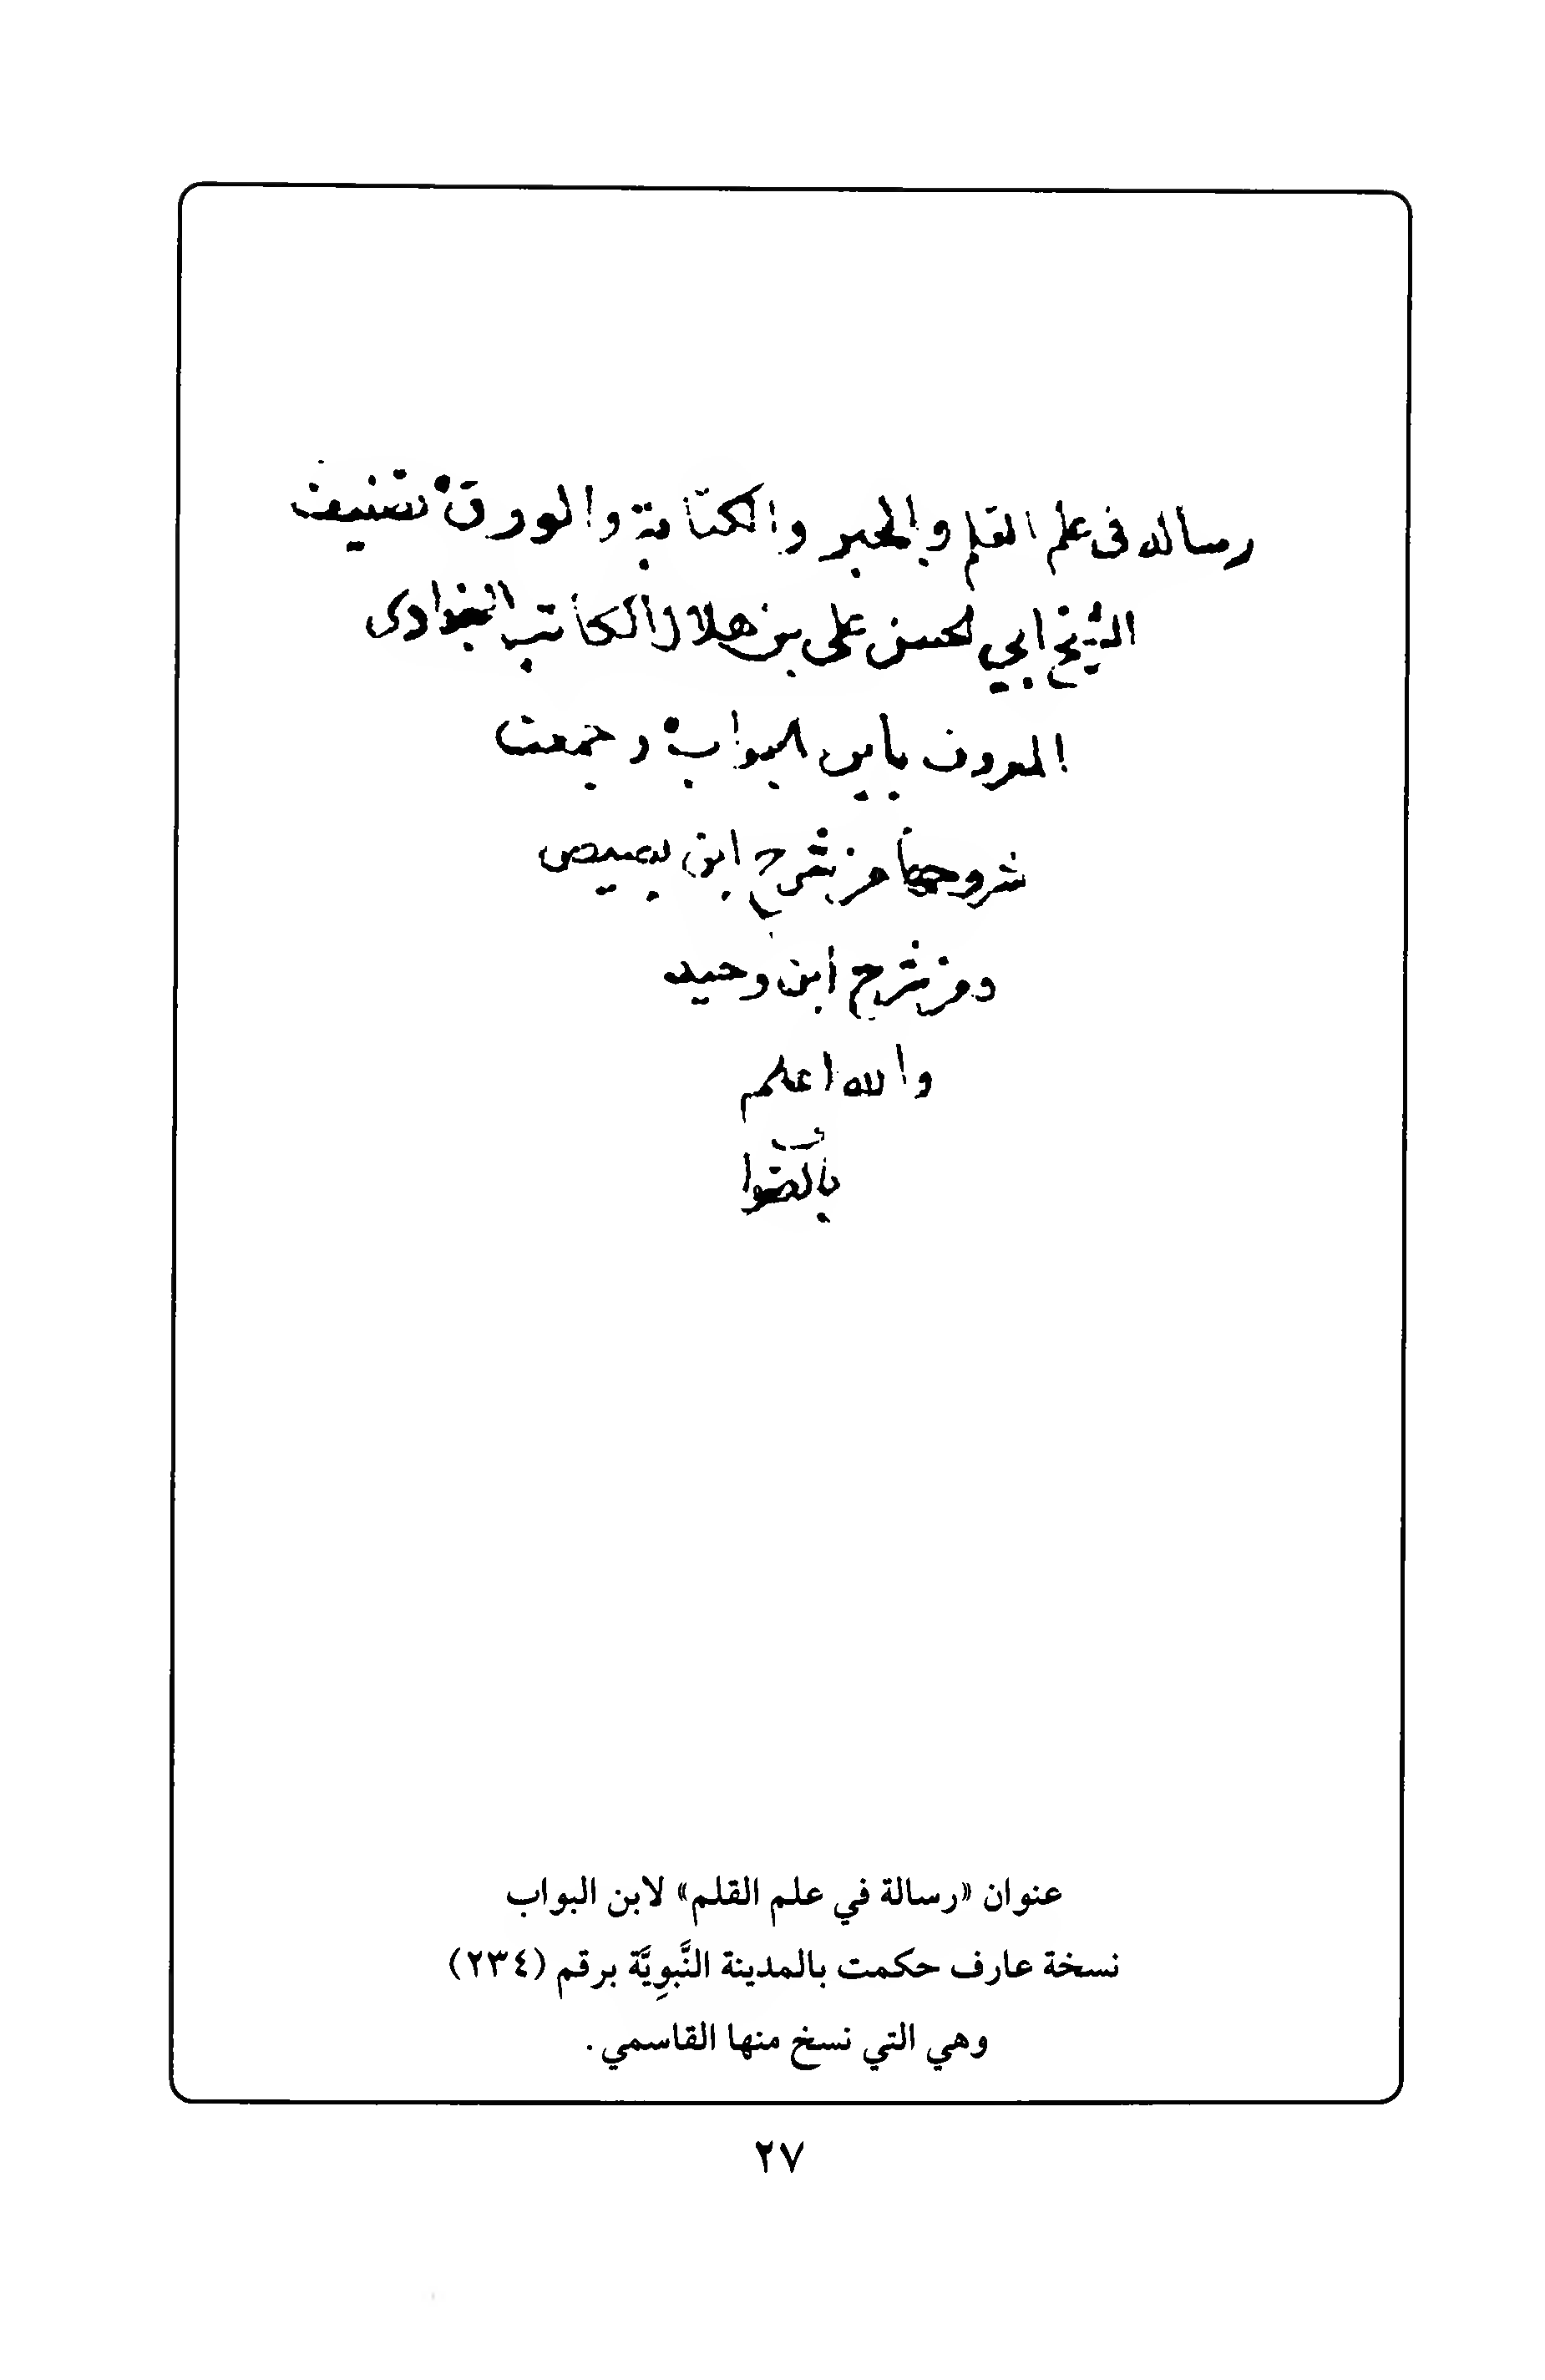 رساله فى علم القلم والحبر والكتابة والورق تصنيف
الشيخ ابي لحسن على بن هلال الكاتب البغدادى
المعروف بابن البواب وجمعت
شروحها من شرح ابن بصيص
ومن شرح ابن وحيد
والله اعلم
بالصواب
عنوان «رسالة في علم القلم» لابن البواب
نسخة عارف حكمت بالمدينة النَّبوِيَّة برقم (٢٣٤)
وهي التي نسخ منها القاسمي.
٢٧